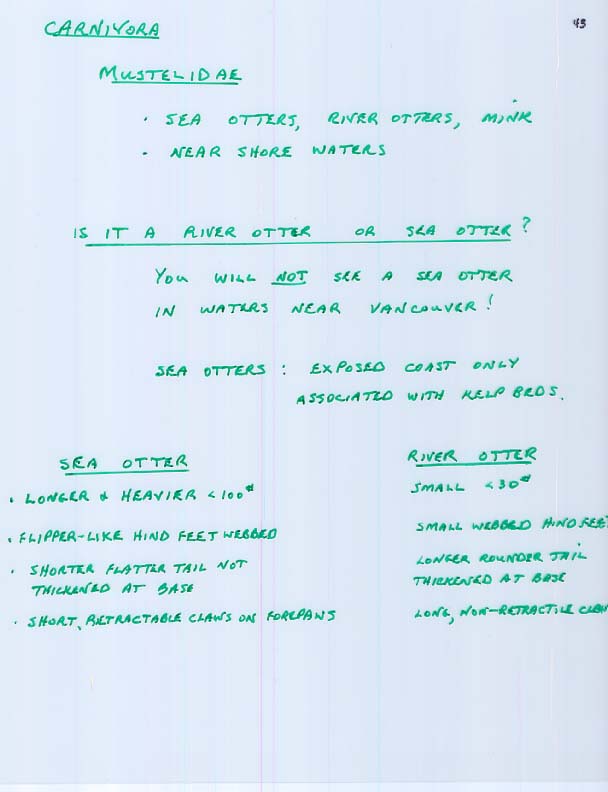 CARNIVORA
45
MUSTELIDAE
· SEA OTTERS, RIVER OTTERS, MINK
· NEAR SHORE WATERS
IS IT A RIVER OTTER OR SEA OTTER?
YOU WILL NOT SEE A SEA OTTER
IN WATERS NEAR VANCOUVER!
SEA OTTERS : EXPOSED COAST ONLY
ASSOCIATED WITH KELP BEDS.
SEA OTTER
· LONGER & HEAVIER <100#
· FLIPPER-LIKE HIND FEET WEBBED
· SHORTER FLATTER TAIL NOT
THICKENED AT BASE
· SHORT, RETRACTABLE CLAWS ON FOREPAWS
RIVER OTTER
SMALL <30#
SMALL WEBBED HIND FEET
LONGER ROUNDER TAIL
THICKENED AT BASE
LONG, NON-RETRACTILE CLAW